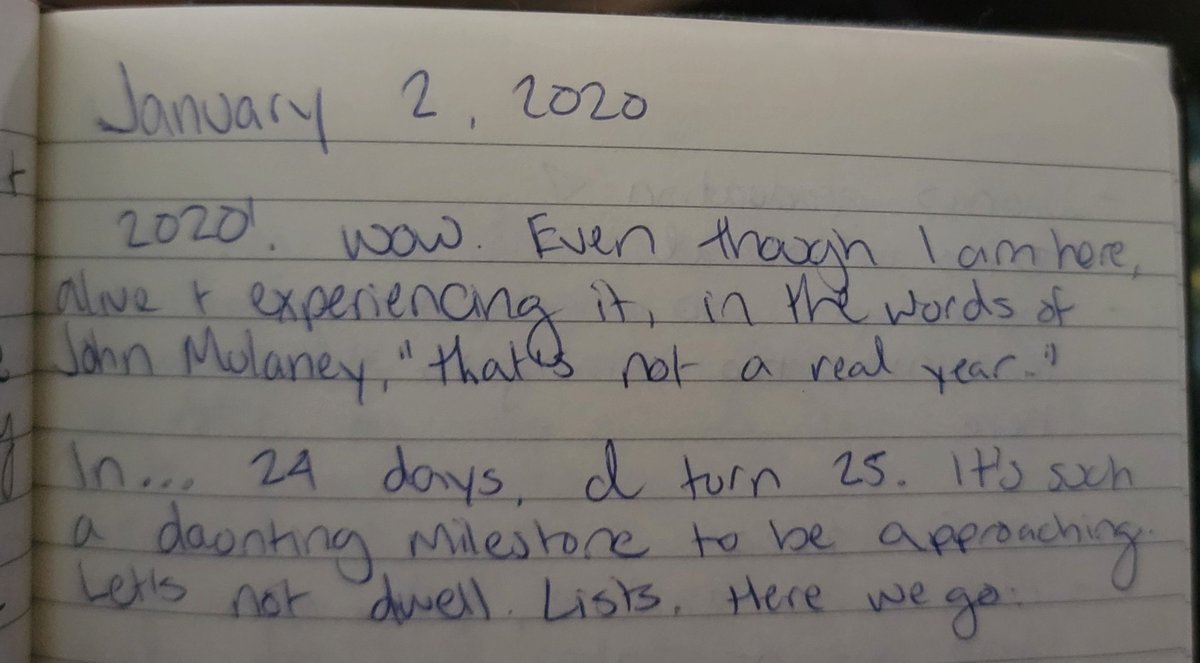 January 2, 2020
2020!. Wow. Even though I am here,
alive + experiencing it, in the words of
John Mulaney, "that's not a real year."
In... 24 days, I turn 25. It's such
a daunting milestone to be approaching.
Let's not dwell. Lists. Here we go.